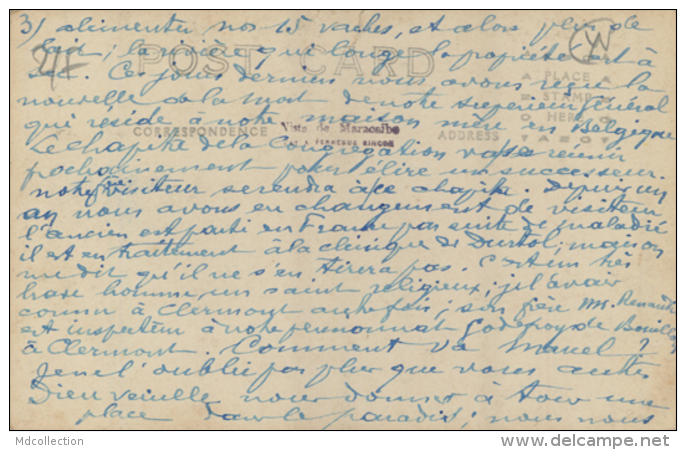 3) alimenter nos 15 vaches, et alors plus de
lait; la rivière qui longe la propriété est à
sec. Ces jours derniers nous avons reçu la
nouvelle de la mort de notre supérieur général
qui réside à notre maison mère en Belgique
Le chapitre de la Congrégation va se réunir
prochainement pour élire un successeur.
notre visiteur se rendra à ce chapitre. Depuis un
an nous avons eu changement de visiteur
l'ancien est parti en France par suite de maladie
il est en traitement à la clinique de Durtol; mais on
me dit qu'il ne s'en tirera pas. C'est un très
brave homme, un saint religieux; je l'avais
connu à Clermont autrefois; son frère M. Renaud
est inspecteur à notre pensionnat Godefroy de Bouillon
à Clermont. Comment va Marcel?
Je ne l'oublie pas plus que vous autres
Dieu veuille nous donner à tous une
place dans le paradis; nous nous
24F
POST CARD
CORRESPONDENCE
ADDRESS
PLACE
STAMP
HERE
AZO
Vista de Maracaibo
RINCON
Mdcollection
www.delcampe.net